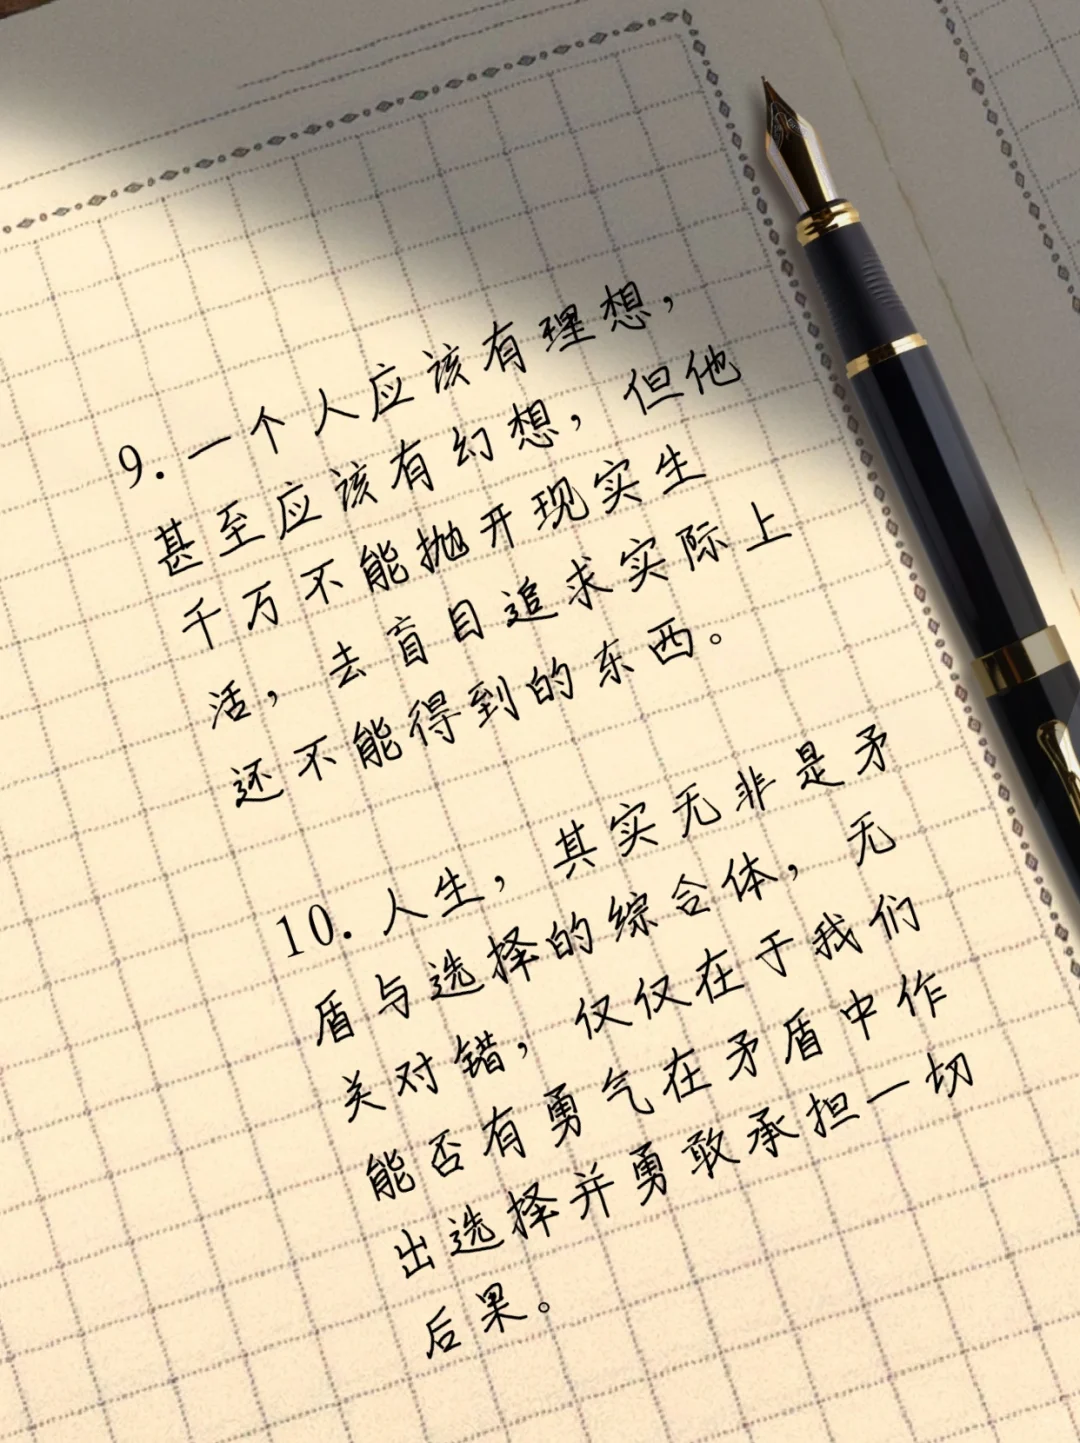 9. 一个人应该有理想，
甚至应该有幻想，但他
千万不能抛开现实生
活，去盲目追求实际上
还不能得到的东西。
10. 人生，其实无非是矛
盾与选择的综合体，无
关对错，仅仅在于我们
能否有勇气在矛盾中作
出选择并勇敢承担一切
后果。